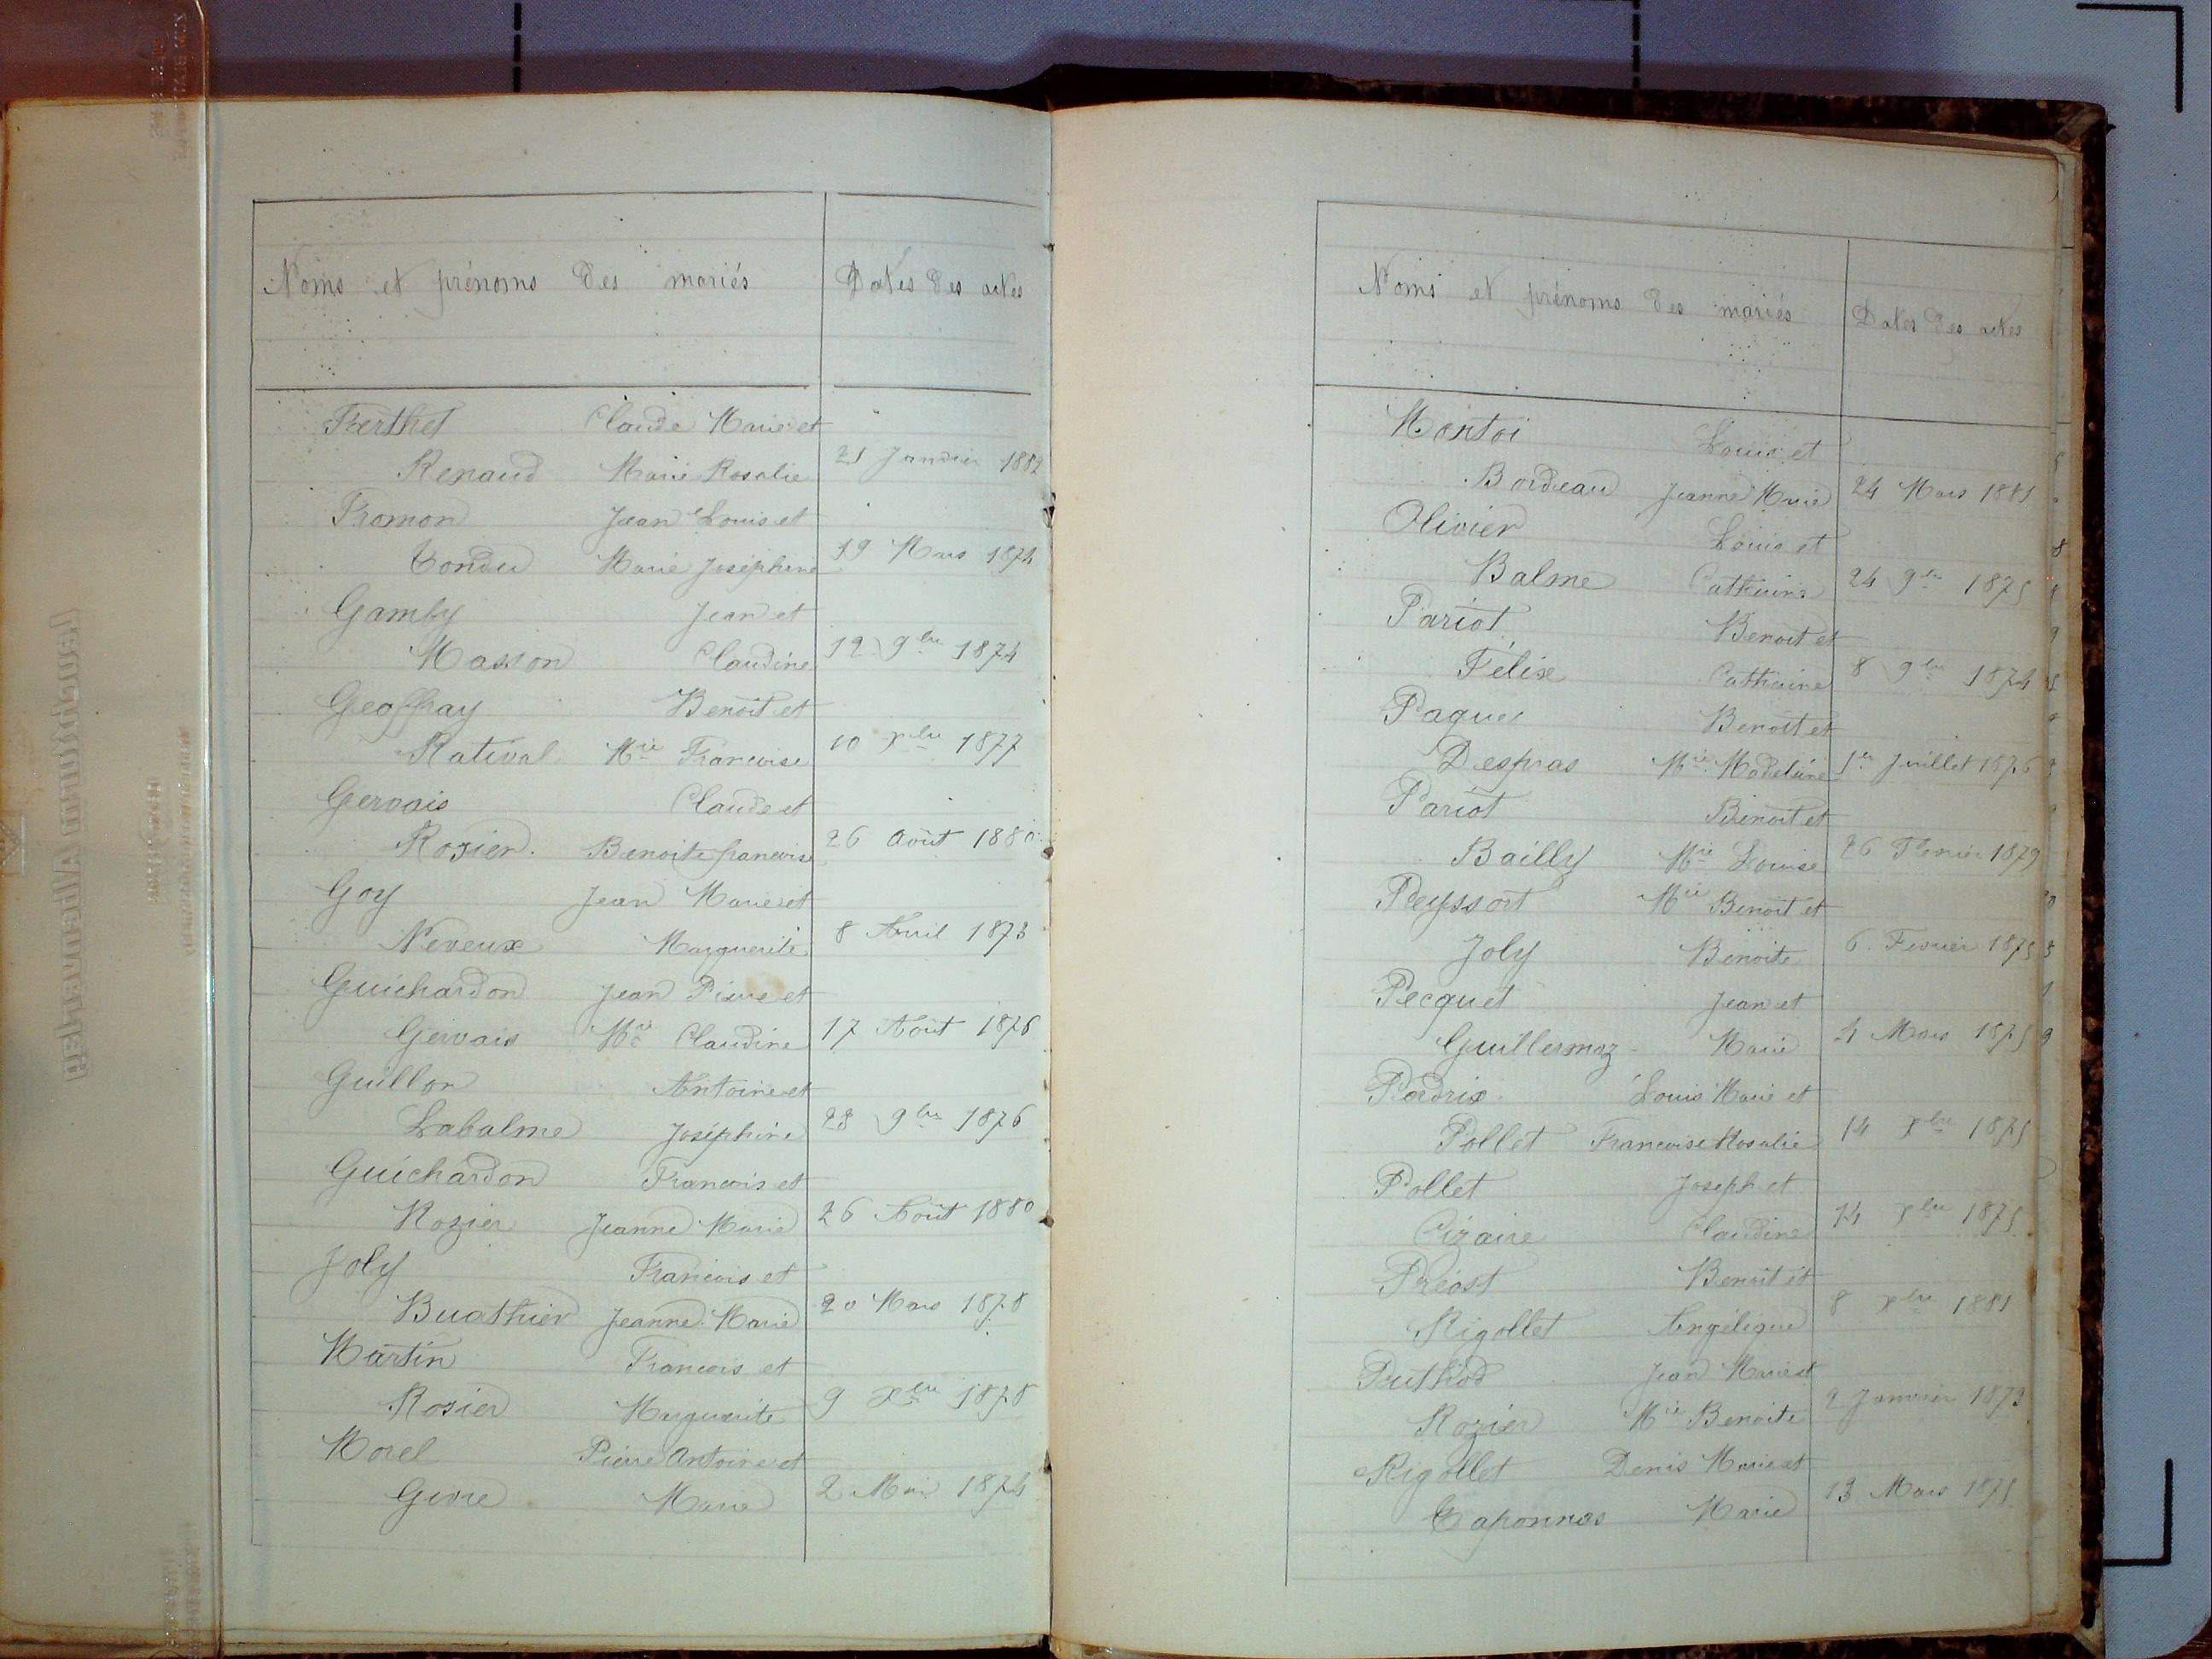 Noms et prénoms des mariés Dates des actes
Ferthet Claude Marie et
Renaud Marie Rosalie 21 Janvier 1882
Fromon Jean Louis et
Tondu Marie Joséphine 19 Mars 1874
Gamby Jean et
Masson Claudine 12 9bre 1874
Geoffray Benoit et
Ratival Mie Francoise 10 Xbre 1877
Gervais Claude et
Rozier Benoite francoise 26 Août 1880
Goy Jean Marie et
Neveux Marguerite 8 Avril 1873
Guichardon Jean Pierre et
Gervais Mie Claudine 17 Août 1876
Guillon Antoine et
Labalme Joséphine 28 9bre 1876
Guichardon Francois et
Rozier Jeanne Marie 26 Août 1880
Joly Francois et
Buathier Jeanne Marie 20 Mars 1878
Martin Francois et
Rosier Marguerite 9 Xbre 1878
Morel Pierre Antoine et
Givre Marie 2 Mai 1874
Noms et prénoms des mariés Dates des actes
Montoi Louis et
Bordeau Jeanne Marie 24 Mars 1881
Olivier Louis et
Balme Catherine 24 9bre 1875
Pariot Benoit et
Félix Catherine 8 9bre 1874
Paques Benoit et
Despras Mie Madeleine 1er Juillet 1876
Pariot Benoit et
Bailly Mie Louise 26 Février 1879
Peyssort Mie Benoit et
Joly Benoite 6 Fevrier 1875
Pecquet Jean et
Guillermoz Marie 4 Mars 1875
Perdrix Louis Marie et
Pollet Francoise Rosalie 14 Xbre 1875
Pollet Joseph et
Cizaire Claudine 14 Xbre 1875
Préost Benoit et
Rigollet Angélique 8 Xbre 1881
Puthod Jean Marie et
Rozier Mie Benoite 2 Janvier 1873
Rigollet Denis Marie et
Caponnas Marie 13 Mars 1875